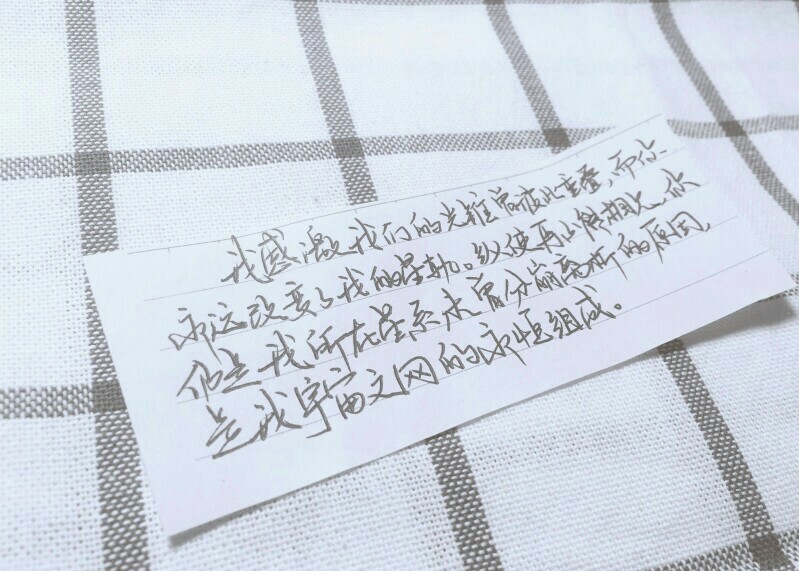 我感激我们的光锥曾彼此重叠,而你
永远改变了我的星轨。纵使再不能相见,你
仍是我所在星系未曾分崩离析的原因,
是我宇宙之网的永恒组成。